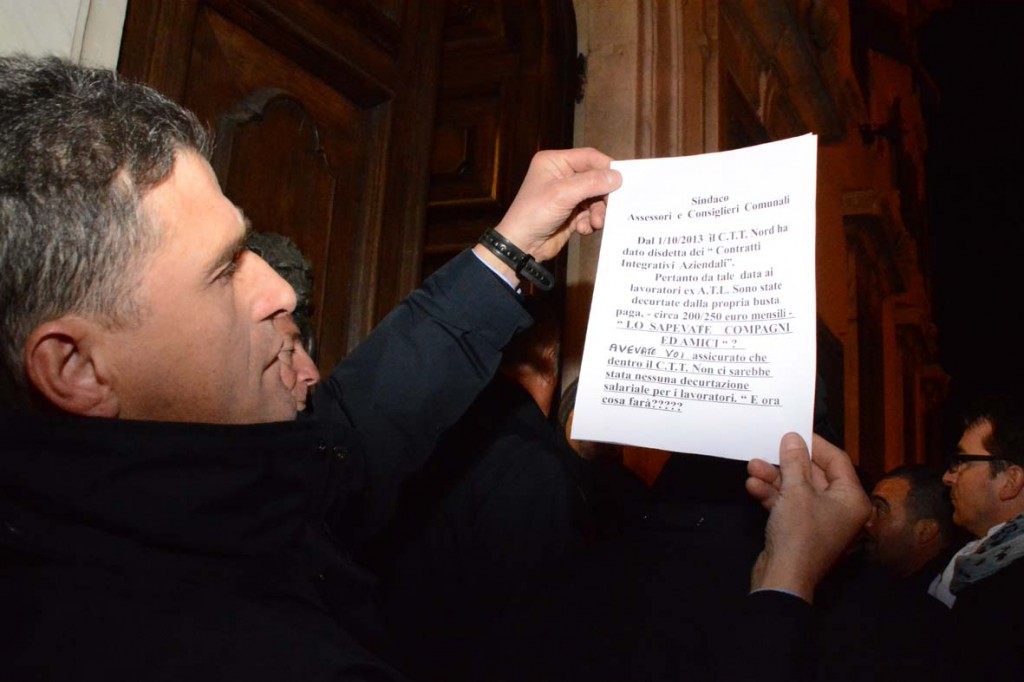 Sindaco
Assessori e Consiglieri Comunali
Dal 1/10/2013 il C.T.T. Nord ha
dato disdetta dei “ Contratti
Integrativi Aziendali”.
Pertanto da tale data ai
lavoratori ex A.T.L. Sono state
decurtate dalla propria busta
paga, - circa 200/250 euro mensili -
“ LO SAPEVATE COMPAGNI
ED AMICI “ ?
AVEVATE VOI assicurato che
dentro il C.T.T. Non ci sarebbe
stata nessuna decurtazione
salariale per i lavoratori. “ E ora
cosa farà?????